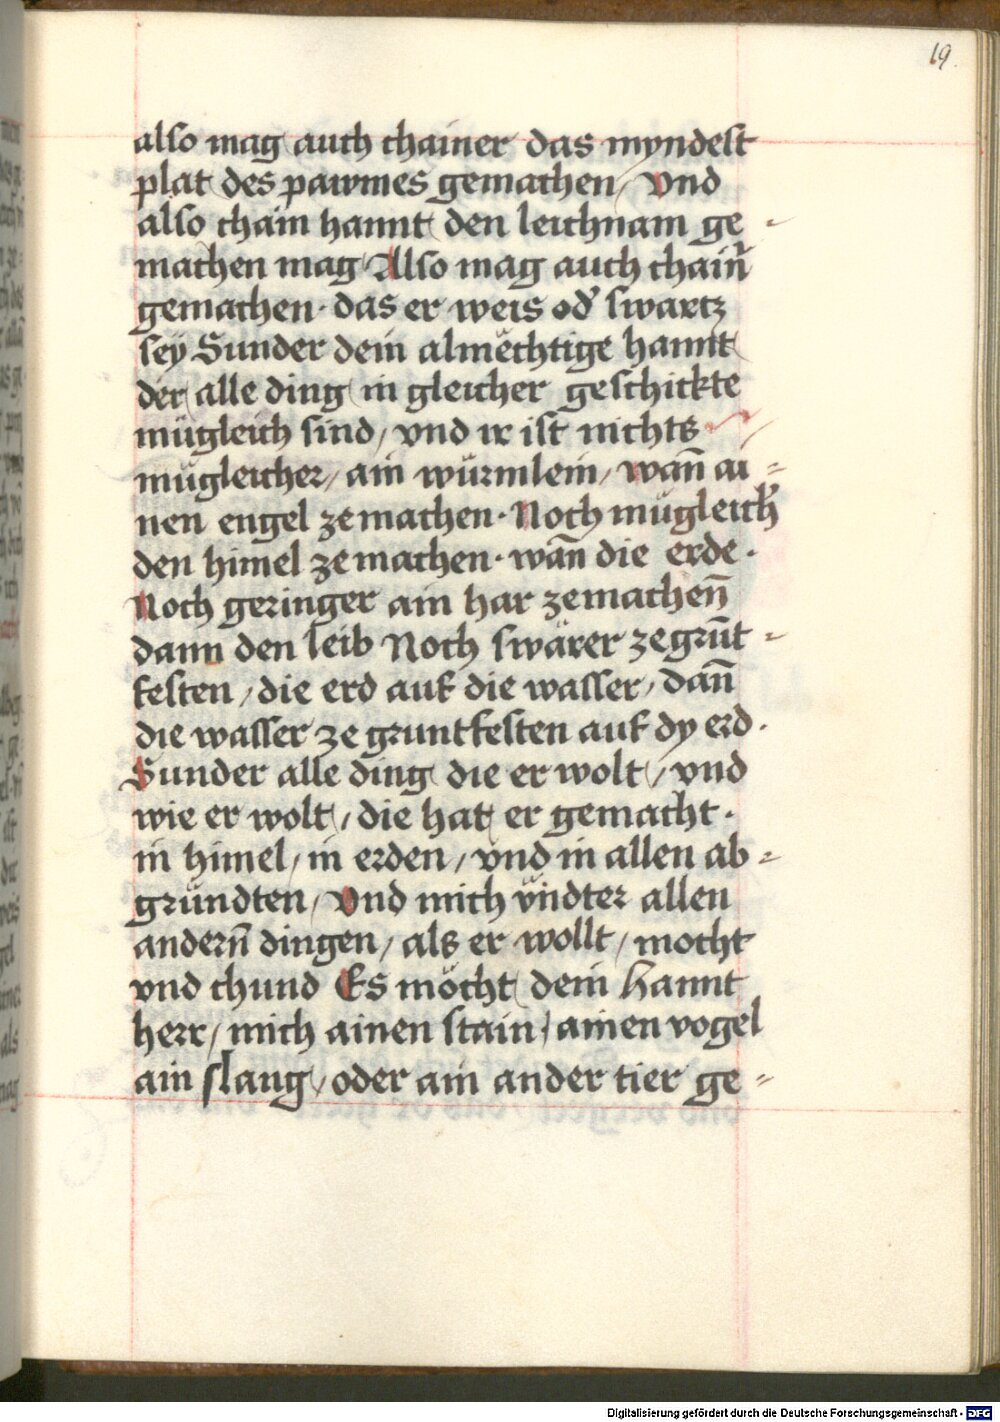 19.
also mag auch chainer das myndest
plat des pawmes gemachen / vnd
also chain hannt den leichnam ge-
machen mag Also mag auch chain̄
gemachen · das er weis od̓ swartz
seÿ Sunder dein almëchtige hannt
der alle ding in gleicher geschickte
mügleich sind / vnd ir ist nichts
mügleicher / ain würmlein / wan̄ ai=
nen engel ze machen · Noch mügleich̓
den himel ze machen · wan̄ die erde ·
Noch geringer ain har zemachen̄
dann den leib Noch swärer ze grūt=
festen / die erd auf die wasser / dan̄
die wasser ze gruntfesten auf dy erd ·
Sunder alle ding die er wolt / vnd
wie er wolt / die hat er gemacht ·
in himel / in erden / vnd in allen ab=
gründten / Vnd mich vndter allen
andern̄ dingen / als er wollt / mocht
vnd chund Es möcht dein Hannt
herr / mich ainen stain / ainen vogel
ain slang / oder ain ander tier ge=
Digitalisierung gefördert durch die Deutsche Forschungsgemeinschaft - DFG